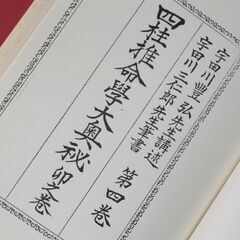 宇田川豊弘先生講述
宇田川三仁郎先生筆書
四柱推命學大奧秘卯之巻
第四巻